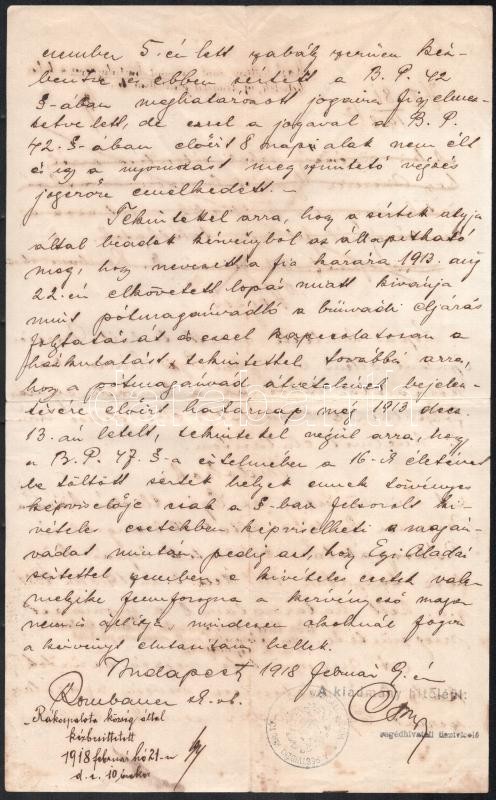 cember 5.-én lett szabályszerűen kéz-
besítve és ebben sértett a B. P. 42
§-ában meghatározott jogaira figyelmez-
tetve lett, de ezzel a jogával a B. P.
42. §-ában előírt 8 napi alatt nem élt
és így a nyomozást megszüntető végzés
jogerőre emelkedett. –
Tekintettel arra, hogy a sértett atyja
által beadott kérvényből az állapítható
meg, hogy nevezett a fia kárára 1913. aug
22.-én elkövetett lopás miatt kívánja
mint pótmagánvádló a bűnvádi eljárás
folytatását és ezzel kapcsolatosan a
házkutatást, tekintettel továbbá arra,
hogy a pótmagánvád átvételének bejelen-
tésére előírt határnap még 1913 dec.
13.-án letelt, tekintettel végül arra, hogy
a B. P. 47. §-a értelmében a 16-ik életévét
be töltött sértett helyett ennek törvényes
képviselője csak a §-ban felsorolt ki-
vételes esetekben képviselheti a magán-
vádat miután pedig az, hogy Egi Aladár
sértettel szemben e kivételes esetek vala-
melyike fennforogna a kérvényező maga
nem is állítja, mindezen okoknál fogva
a kérvényt elutasítani kellett.
Budapest, 1918 február 9.-én
A kiadmány hiteléül:
Rombauer sk.
segédhivatali tisztviselő
Rákospalota község által
kézbesíttetett
1918 február hó 21-n
d. e. 10 órakor
darabanth